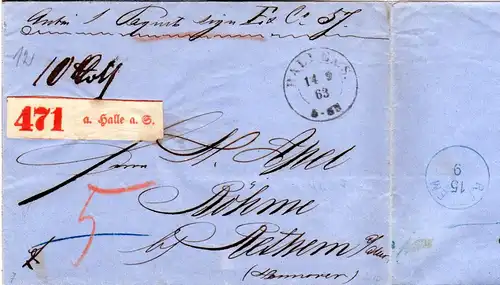 Anbei 1 Paquet sign E & C: 57
12
10 Loth
HALLE A/S.
14 9
63
5-6N
471 a. Halle a. S.
Herrn H. Apel
5
Böhme
bei Rethem a/Aller
(Hannover)
15
9